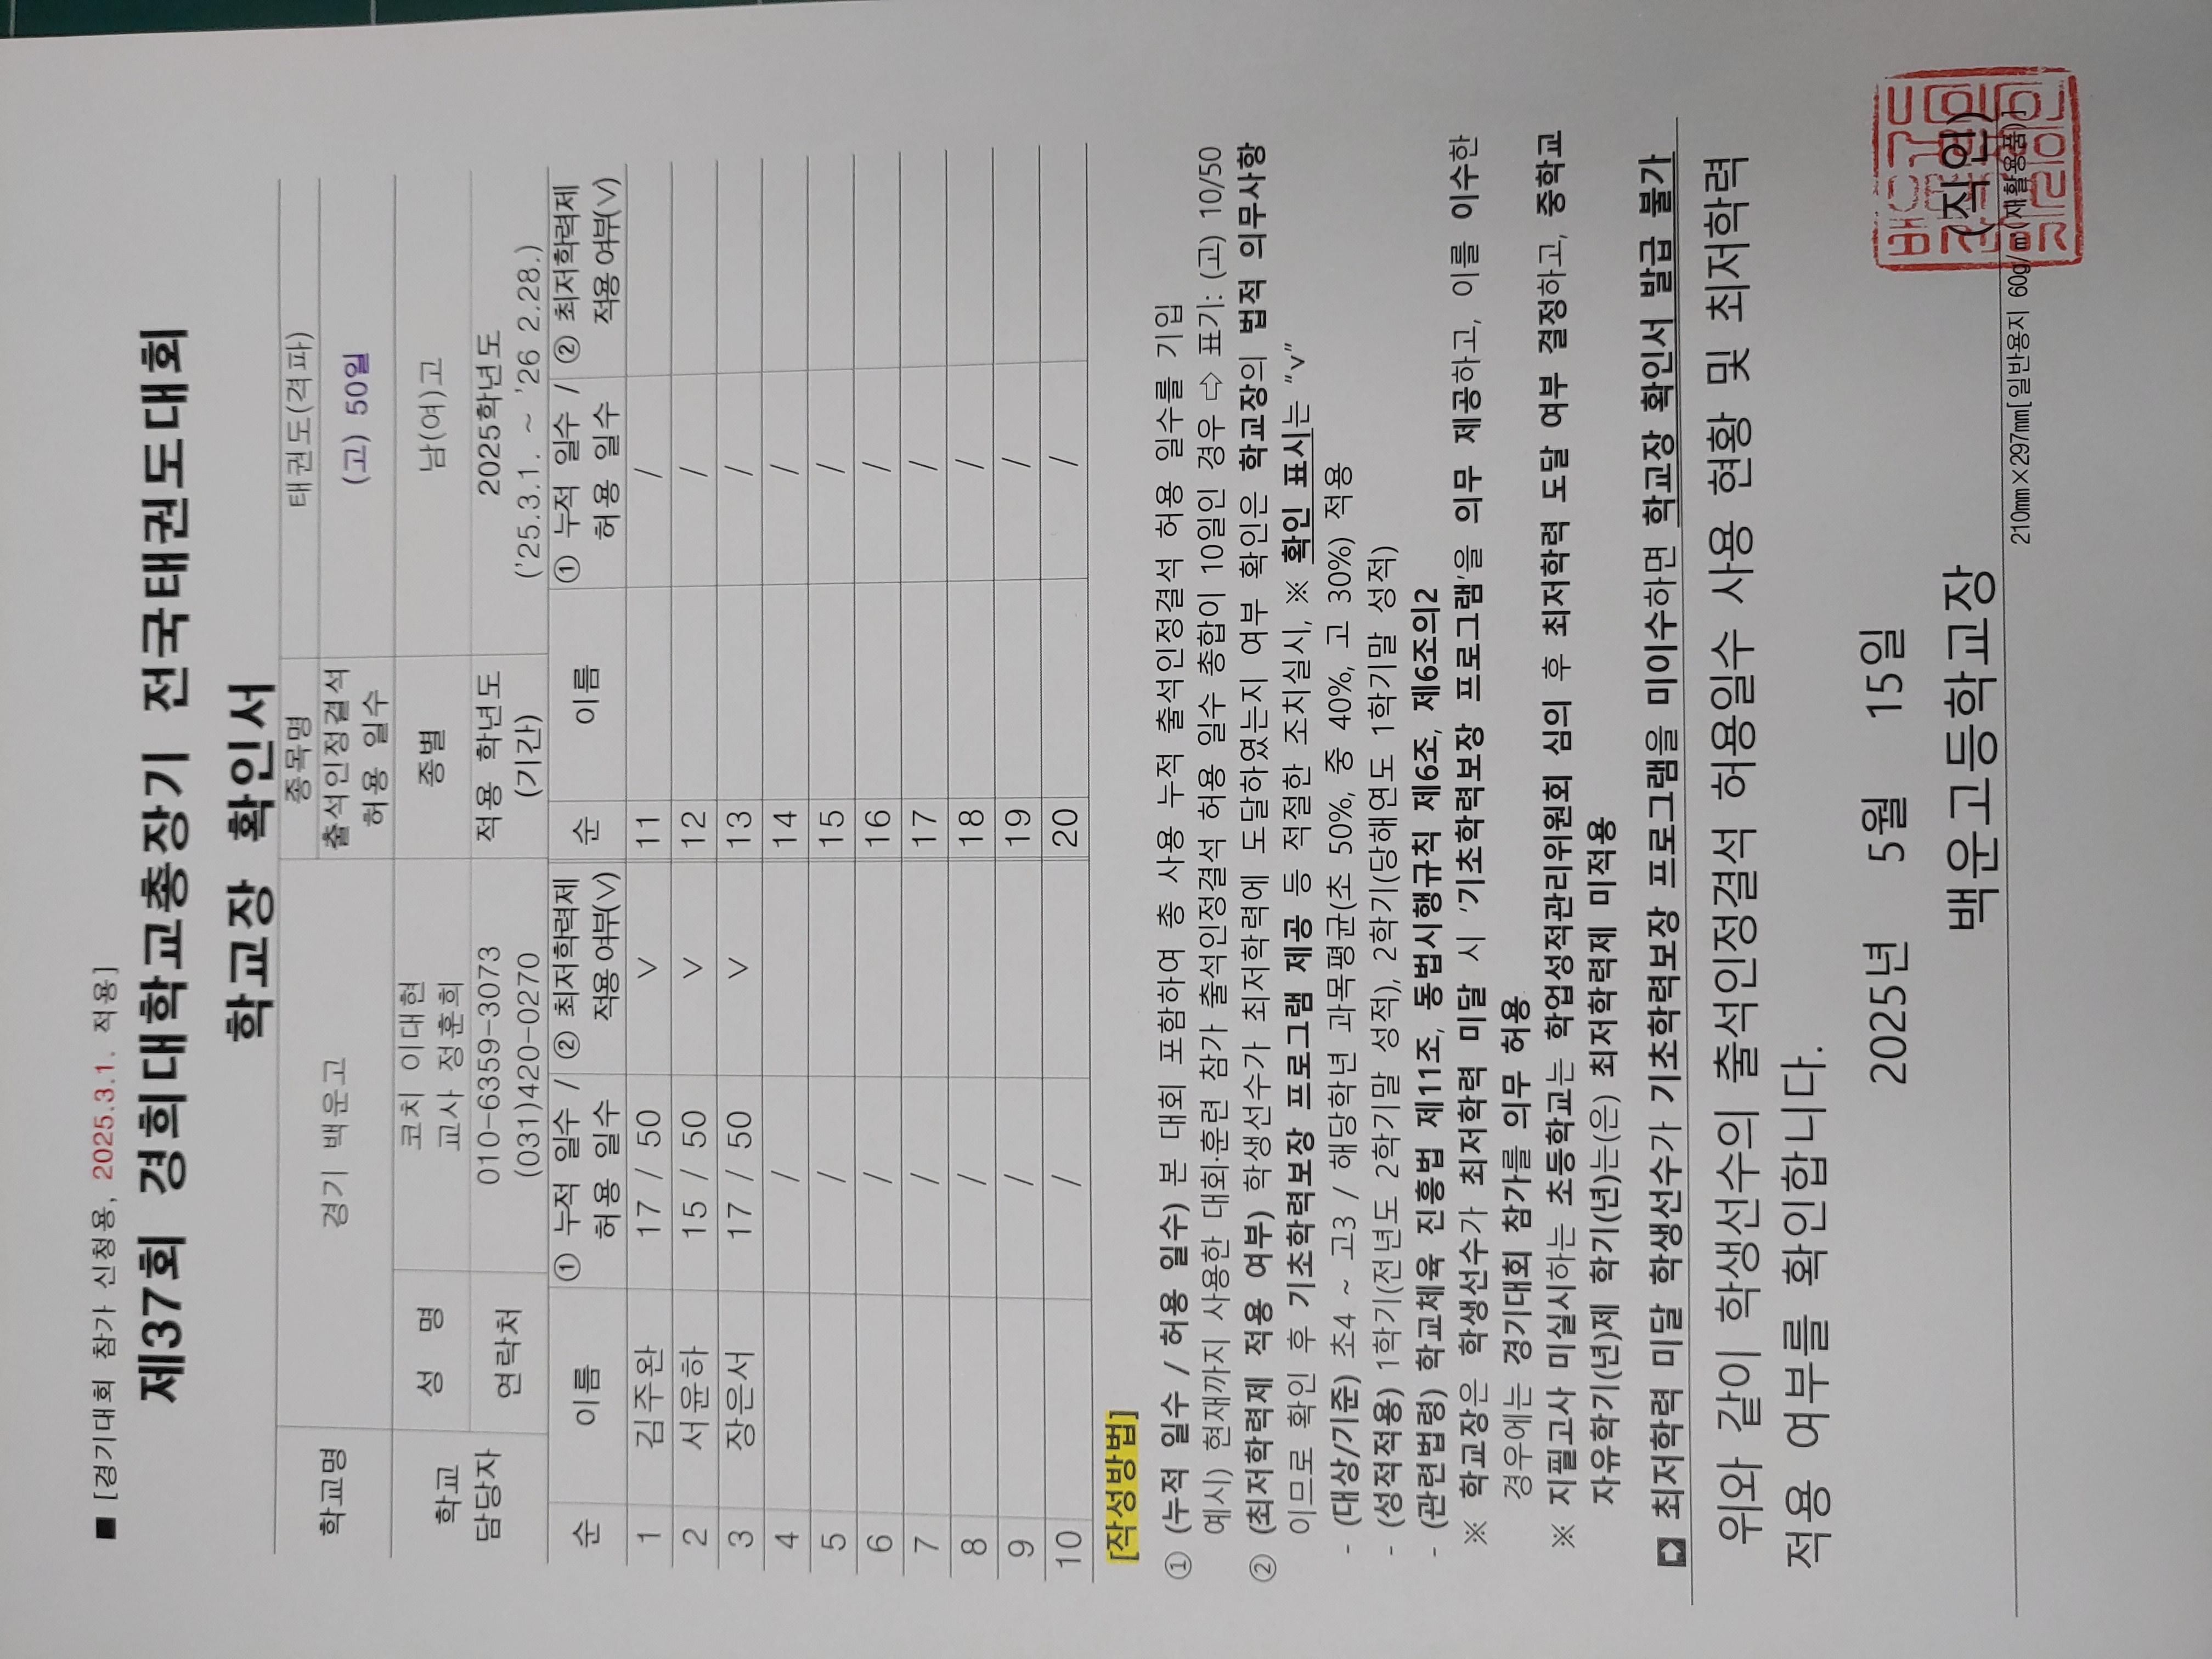 ■ [경기대회 참가 신청용, 2025.3.1. 적용]
제37회 경희대학교총장기 전국태권도대회
학교장 확인서
학교명 경기 백운고 종목명 태권도(격파)
출석인정결석 허용 일수 (고) 50일
학교 담당자 성 명 코치 이대현 교사 정훈희 종별 남(여)고
연락처 010-6359-3073 (031)420-0270 적용 학년도 (기간) 2025학년도 ('25.3.1. ~ '26 2.28.)
순 이름 ① 누적 일수 / 허용 일수 ② 최저학력제 적용 여부(∨) 순 이름 ① 누적 일수 / 허용 일수 ② 최저학력제 적용 여부(∨)
1 김주완 17 / 50 ∨ 11 /
2 서윤하 15 / 50 ∨ 12 /
3 장은서 17 / 50 ∨ 13 /
4 / 14 /
5 / 15 /
6 / 16 /
7 / 17 /
8 / 18 /
9 / 19 /
10 / 20 /
[작성방법]
① (누적 일수 / 허용 일수) 본 대회 포함하여 총 사용 누적 출석인정결석 허용 일수를 기입
예시) 현재까지 사용한 대회·훈련 참가 출석인정결석 허용 일수 총합이 10일인 경우 ⇨ 표기: (고) 10/50
② (최저학력제 적용 여부) 학생선수가 최저학력에 도달하였는지 여부 확인은 학교장의 법적 의무사항
이므로 확인 후 기초학력보장 프로그램 제공 등 적절한 조치실시, ※ 확인 표시는 “v”
- (대상/기준) 초4 ~ 고3 / 해당학년 과목평균(초 50%, 중 40%, 고 30%) 적용
- (성적적용) 1학기(전년도 2학기말 성적), 2학기(당해연도 1학기말 성적)
- (관련법령) 학교체육 진흥법 제11조, 동법시행규칙 제6조, 제6조의2
※ 학교장은 학생선수가 최저학력 미달 시 '기초학력보장 프로그램'을 의무 제공하고, 이를 이수한
경우에는 경기대회 참가를 의무 허용
※ 지필고사 미실시하는 초등학교는 학업성적관리위원회 심의 후 최저학력 도달 여부 결정하고, 중학교
자유학기(년)제 학기(년)는(은) 최저학력제 미적용
➡ 최저학력 미달 학생선수가 기초학력보장 프로그램을 미이수하면 학교장 확인서 발급 불가
위와 같이 학생선수의 출석인정결석 허용일수 사용 현황 및 최저학력
적용 여부를 확인합니다.
2025년 5월 15일
백운고등학교장 (직인)
210㎜×297㎜[일반용지 60g/㎡(재활용품)]